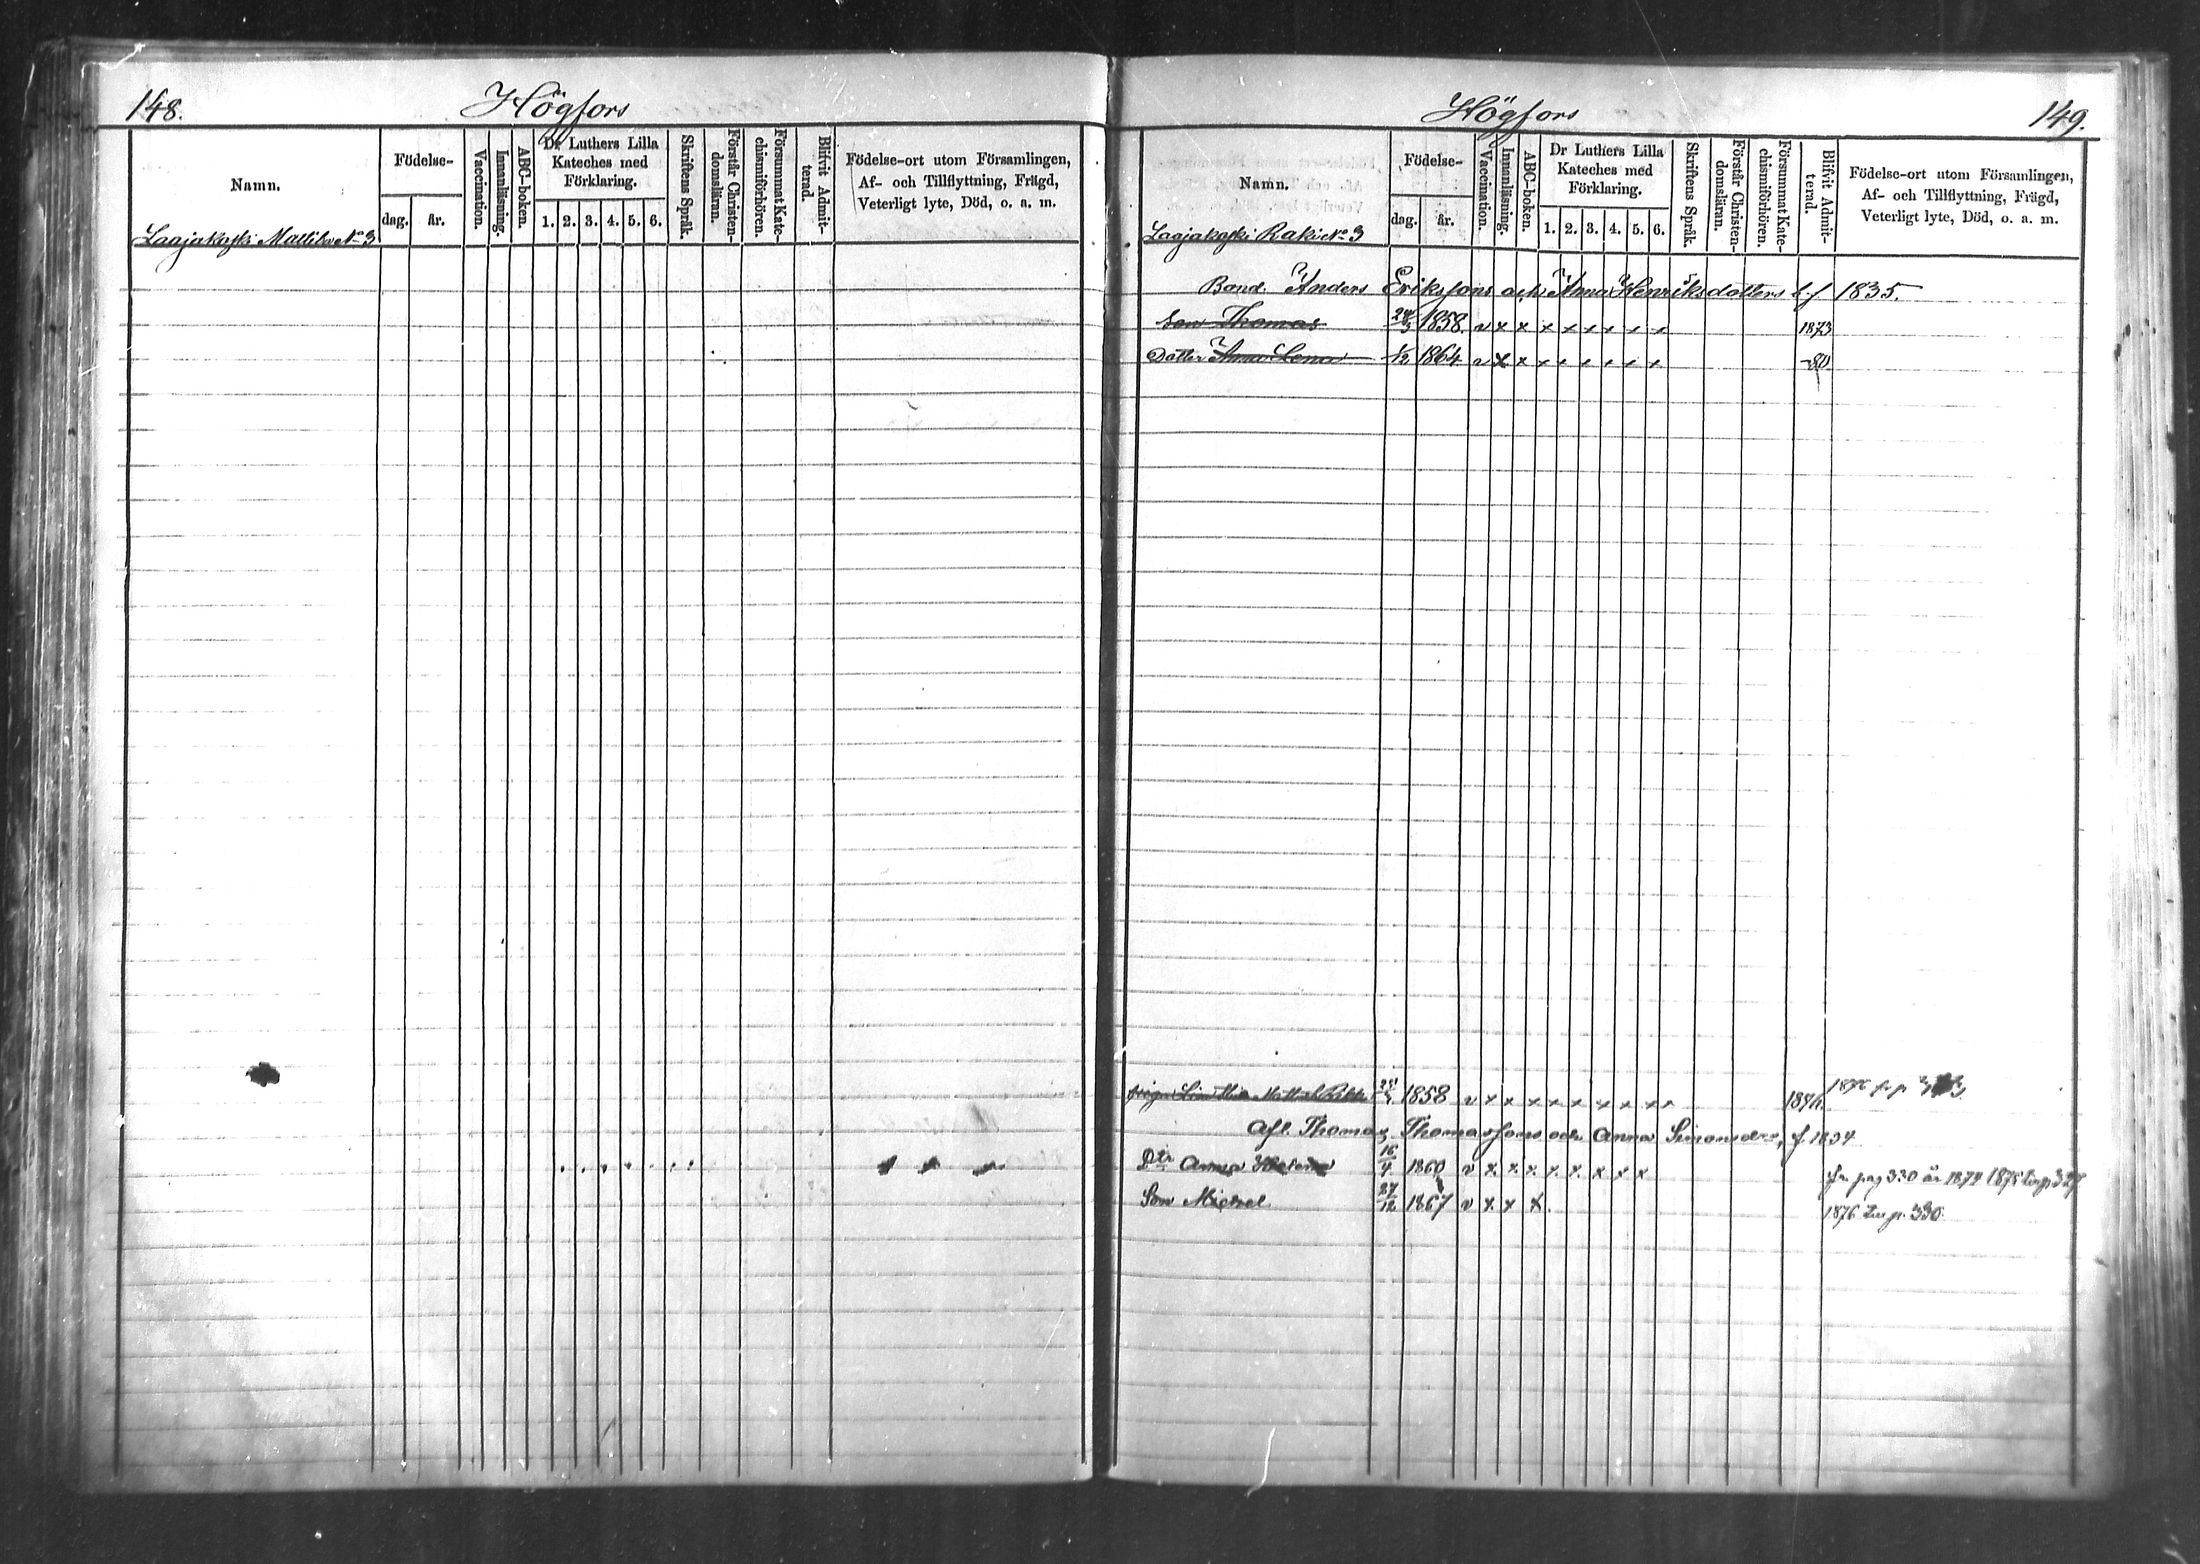 148.
Högfors
Namn.
Födelse-
dag.
år.
Vaccination.
Innanläsning.
ABC-boken.
Dr Luthers Lilla
Kateches med
Förklaring.
1. 2. 3. 4. 5. 6.
Skriftens Språk.
Förstår Christen-
domsläran.
Försummat Kate-
chismiförhören.
Blifvit Admit-
terad.
Födelse-ort utom Församlingen,
Af- och Tillflyttning, Frägd,
Veterligt lyte, Död, o. a. m.
Laajakoski Mattila No 3
Högfors
149.
Namn.
Födelse-
dag.
år.
Vaccination.
Innanläsning.
ABC-boken.
Dr Luthers Lilla
Kateches med
Förklaring.
1. 2. 3. 4. 5. 6.
Skriftens Språk.
Förstår Christen-
domsläran.
Försummat Kate-
chismiförhören.
Blifvit Admit-
terad.
Födelse-ort utom Församlingen,
Af- och Tillflyttning, Frägd,
Veterligt lyte, Död, o. a. m.
Laajakoski Raki No 3
Bond. Anders Erikssons och Anna Henriksdotters b. f 1835.
Son Thomas 1858 v x x x x x x x x x 1873
Dotter Anna Lena 1/12 1864 v x x x x x x x x -80
1858 v x x x x x x x x x
Afl. Thomas Thomassons och Anna Simonsdrs, f. 1834
Dtr Anna Helena 16/4 1860 v x x x x x x x x fr. pag 330 år 1874
Son Michel 27/12 1867 v x x x 1876 till p. 330